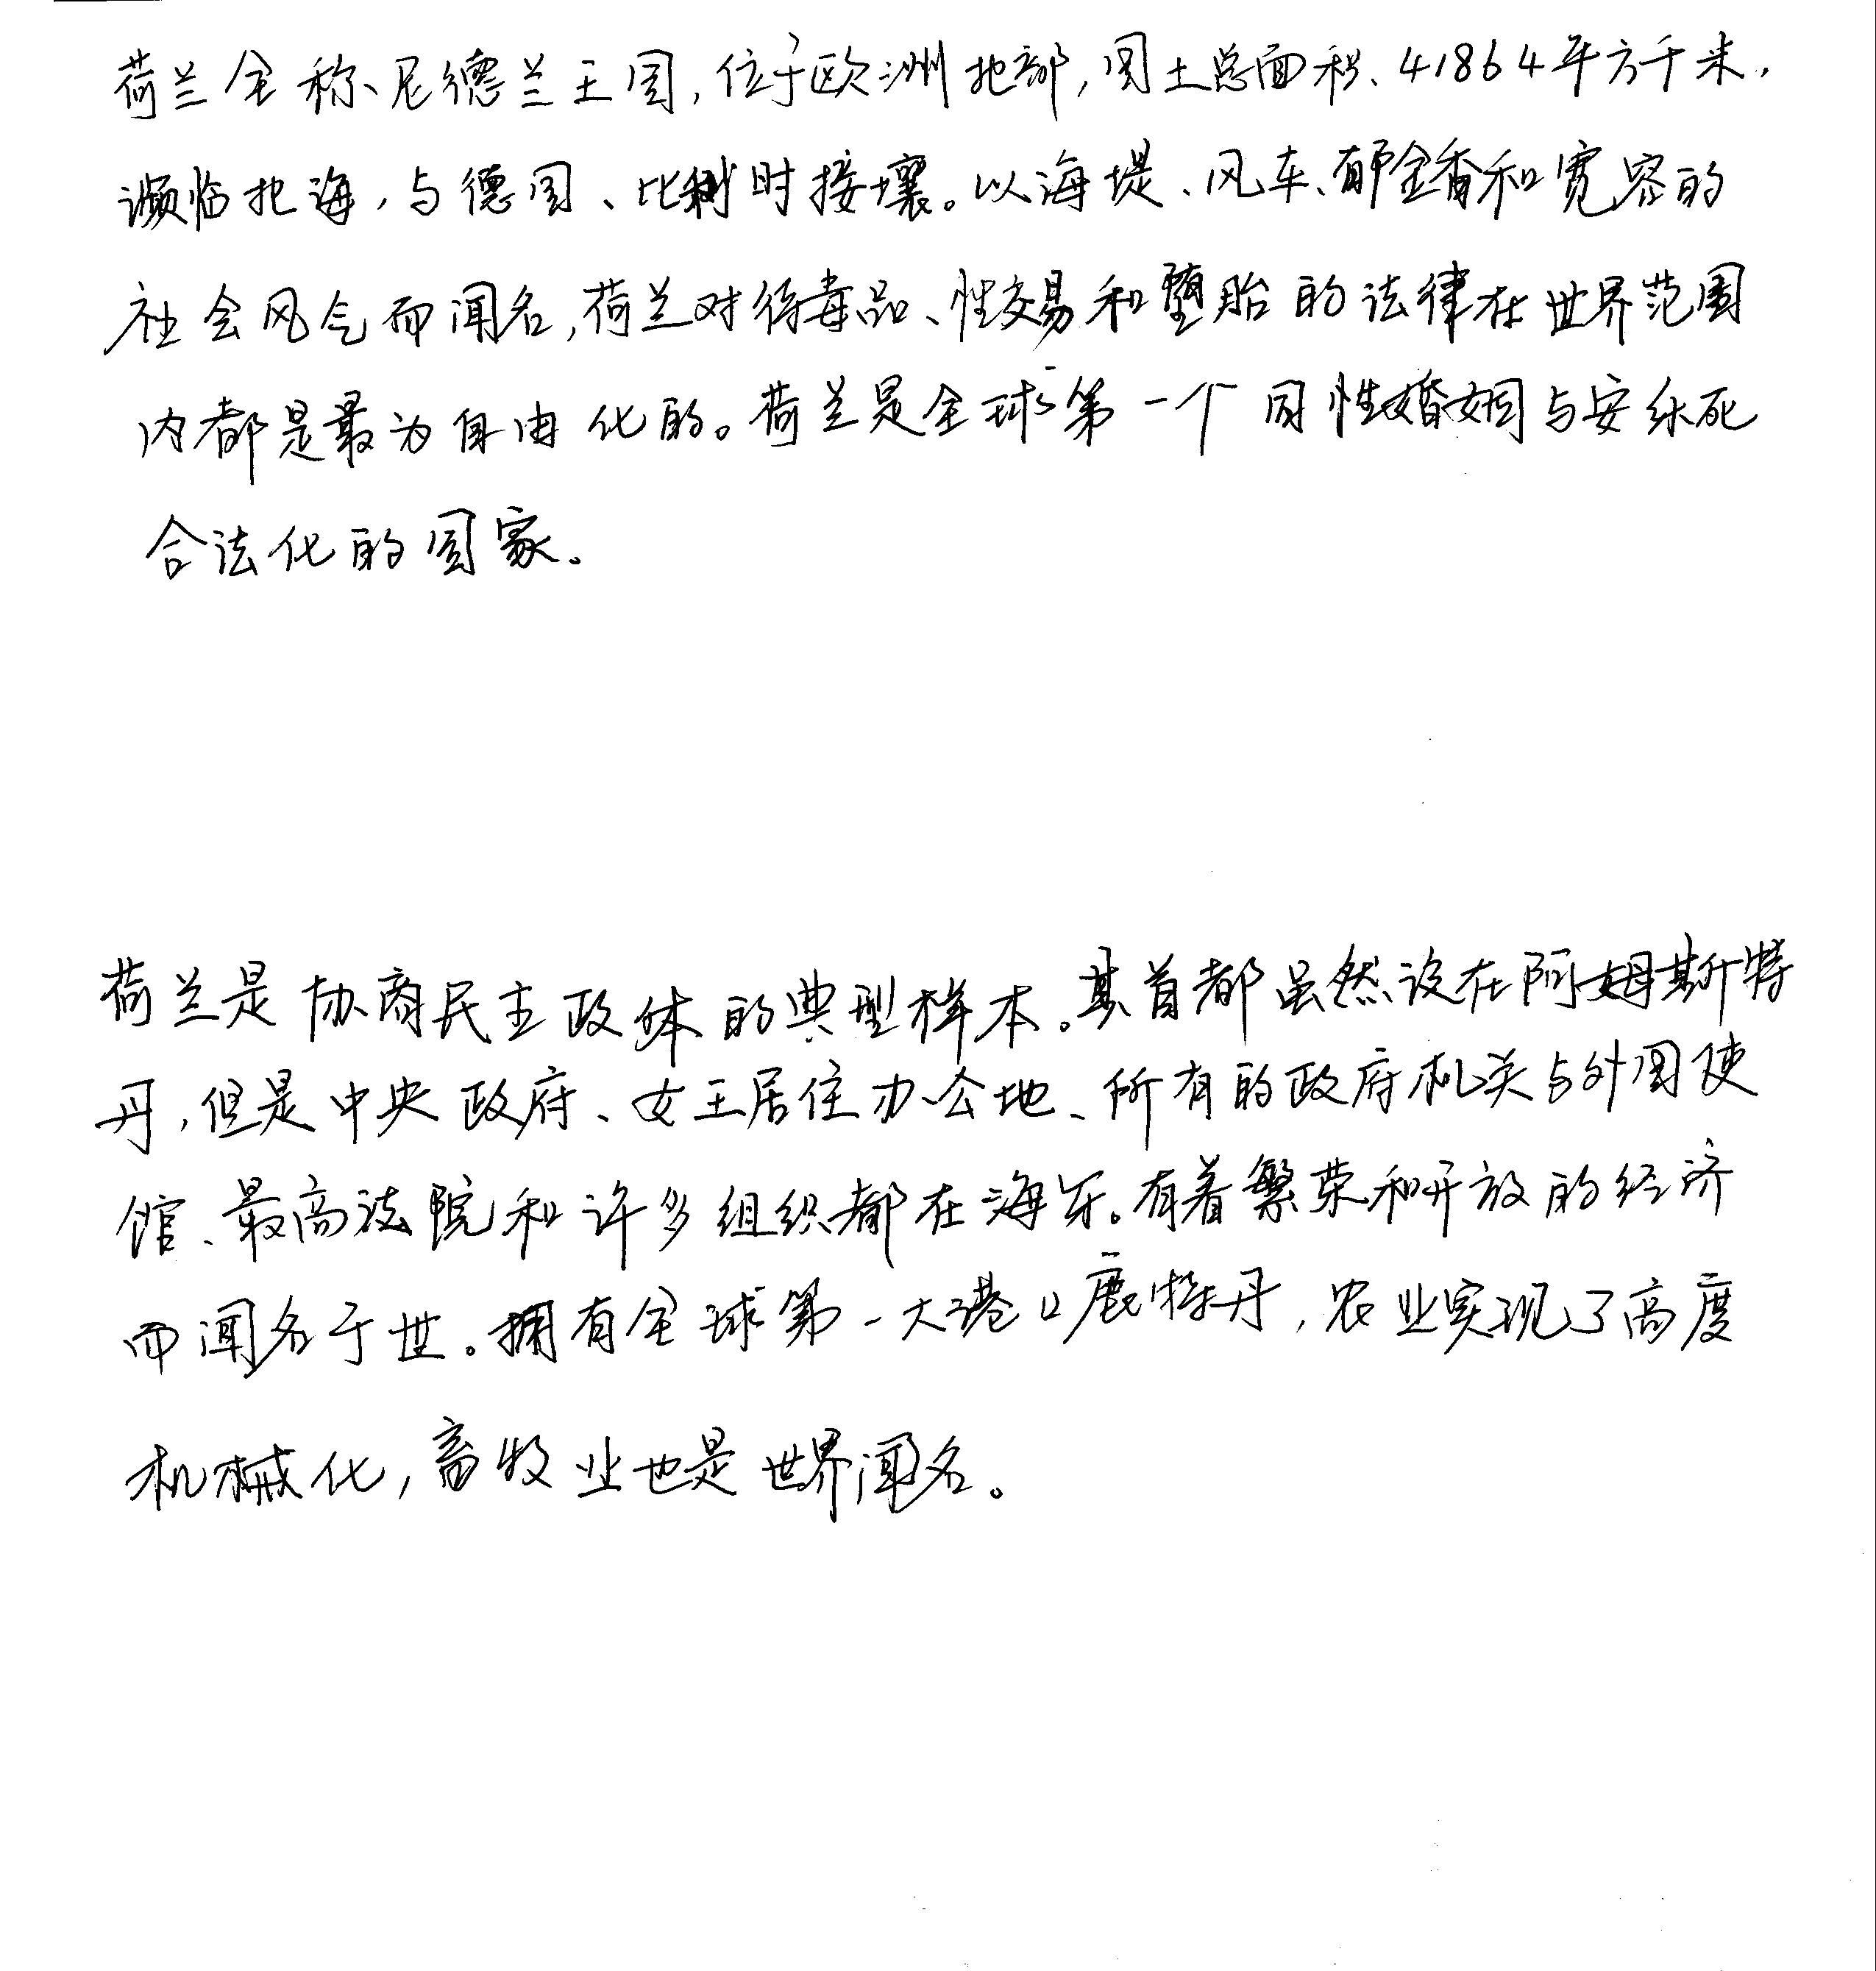 荷兰全称尼德兰王国,位于欧洲北部,国土总面积、41864平方千米,
濒临北海,与德国、比利时接壤。以海堤、风车、郁金香和宽容的
社会风气而闻名,荷兰对待毒品、性交易和堕胎的法律在世界范围
内都是最为自由化的。荷兰是全球第一个同性婚姻与安乐死
合法化的国家。
荷兰是协商民主政体的典型样本。其首都虽然设在阿姆斯特
丹,但是中央政府、女王居住办公地、所有的政府机关与外国使
馆、最高法院和许多组织都在海牙。有着繁荣和开放的经济
而闻名于世。拥有全球第一大港口鹿特丹,农业实现了高度
机械化,畜牧业也是世界闻名。